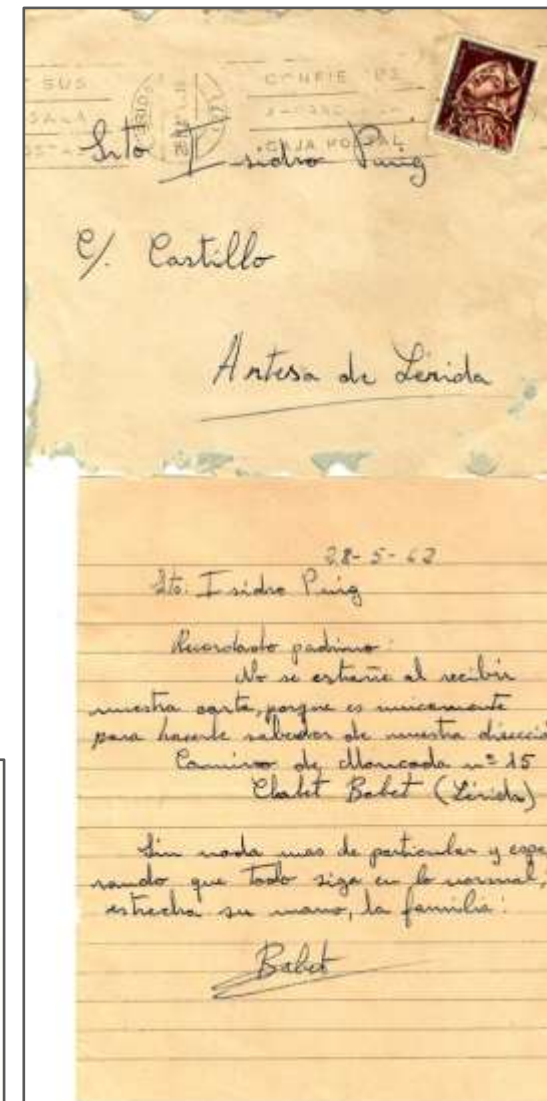 SUS
CONFIE SUS
CAJA POSTAL
Srto Isidro Puig
C/. Castillo
Artesa de Lérida
28-5-62
Sto. Isidro Puig
Recordado padrino:
No se estrañe al recibir
nuestra carta, porque es unicamente
para hacerle sabedor de nuestra direcció
Camino de Moncada nº 15
Chalet Babet (Lérida)
Sin nada mas de particular y espe
rando que todo siga en lo normal,
estrecha su mano, la familia:
Babet